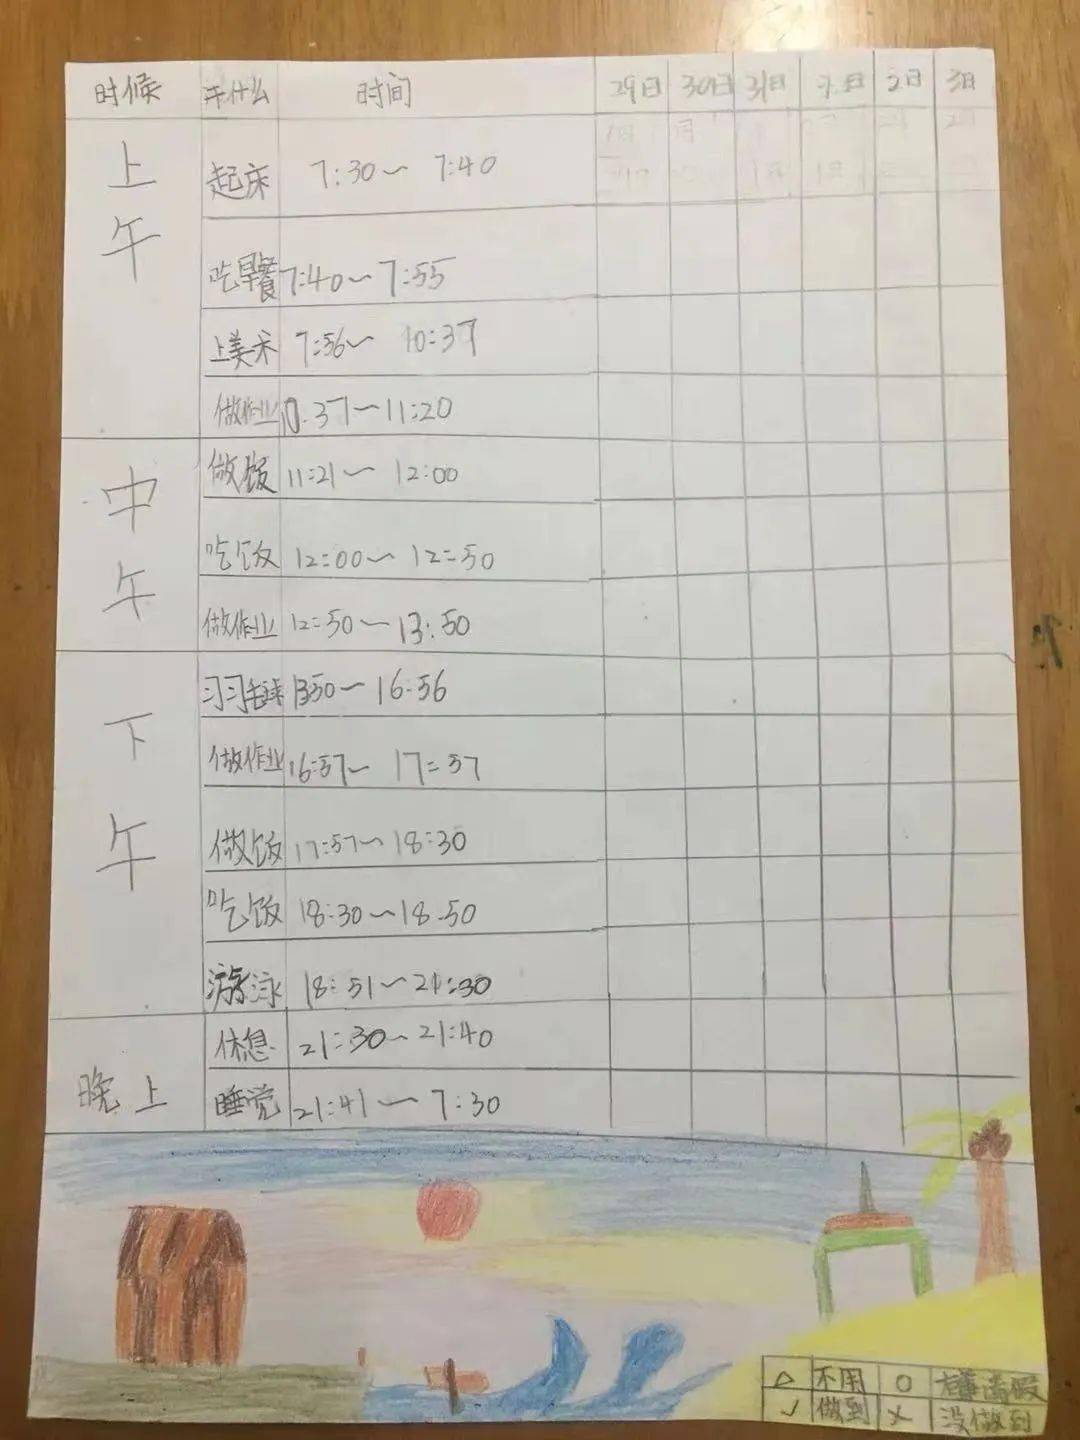 时候 干什么 时间 29日 30日 31日 1日 2日 3日
上午
起床 7:30~ 7:40
吃早餐 7:40~7:55
上美术 7:56~ 10:37
做作业 10.37~11:20
中午
做饭 11:21~ 12:00
吃饭 12:00~ 12:50
做作业 12:50~13:50
下午
1350~16:56
做作业 16:57~ 17:57
做饭 17:57~18:30
吃饭 18:30~18.50
游泳 18:51~21:30
晚上
休息 21:30~21:40
睡觉 21:41~ 7:30
△ 不用 ○
√ 做到 × 没做到